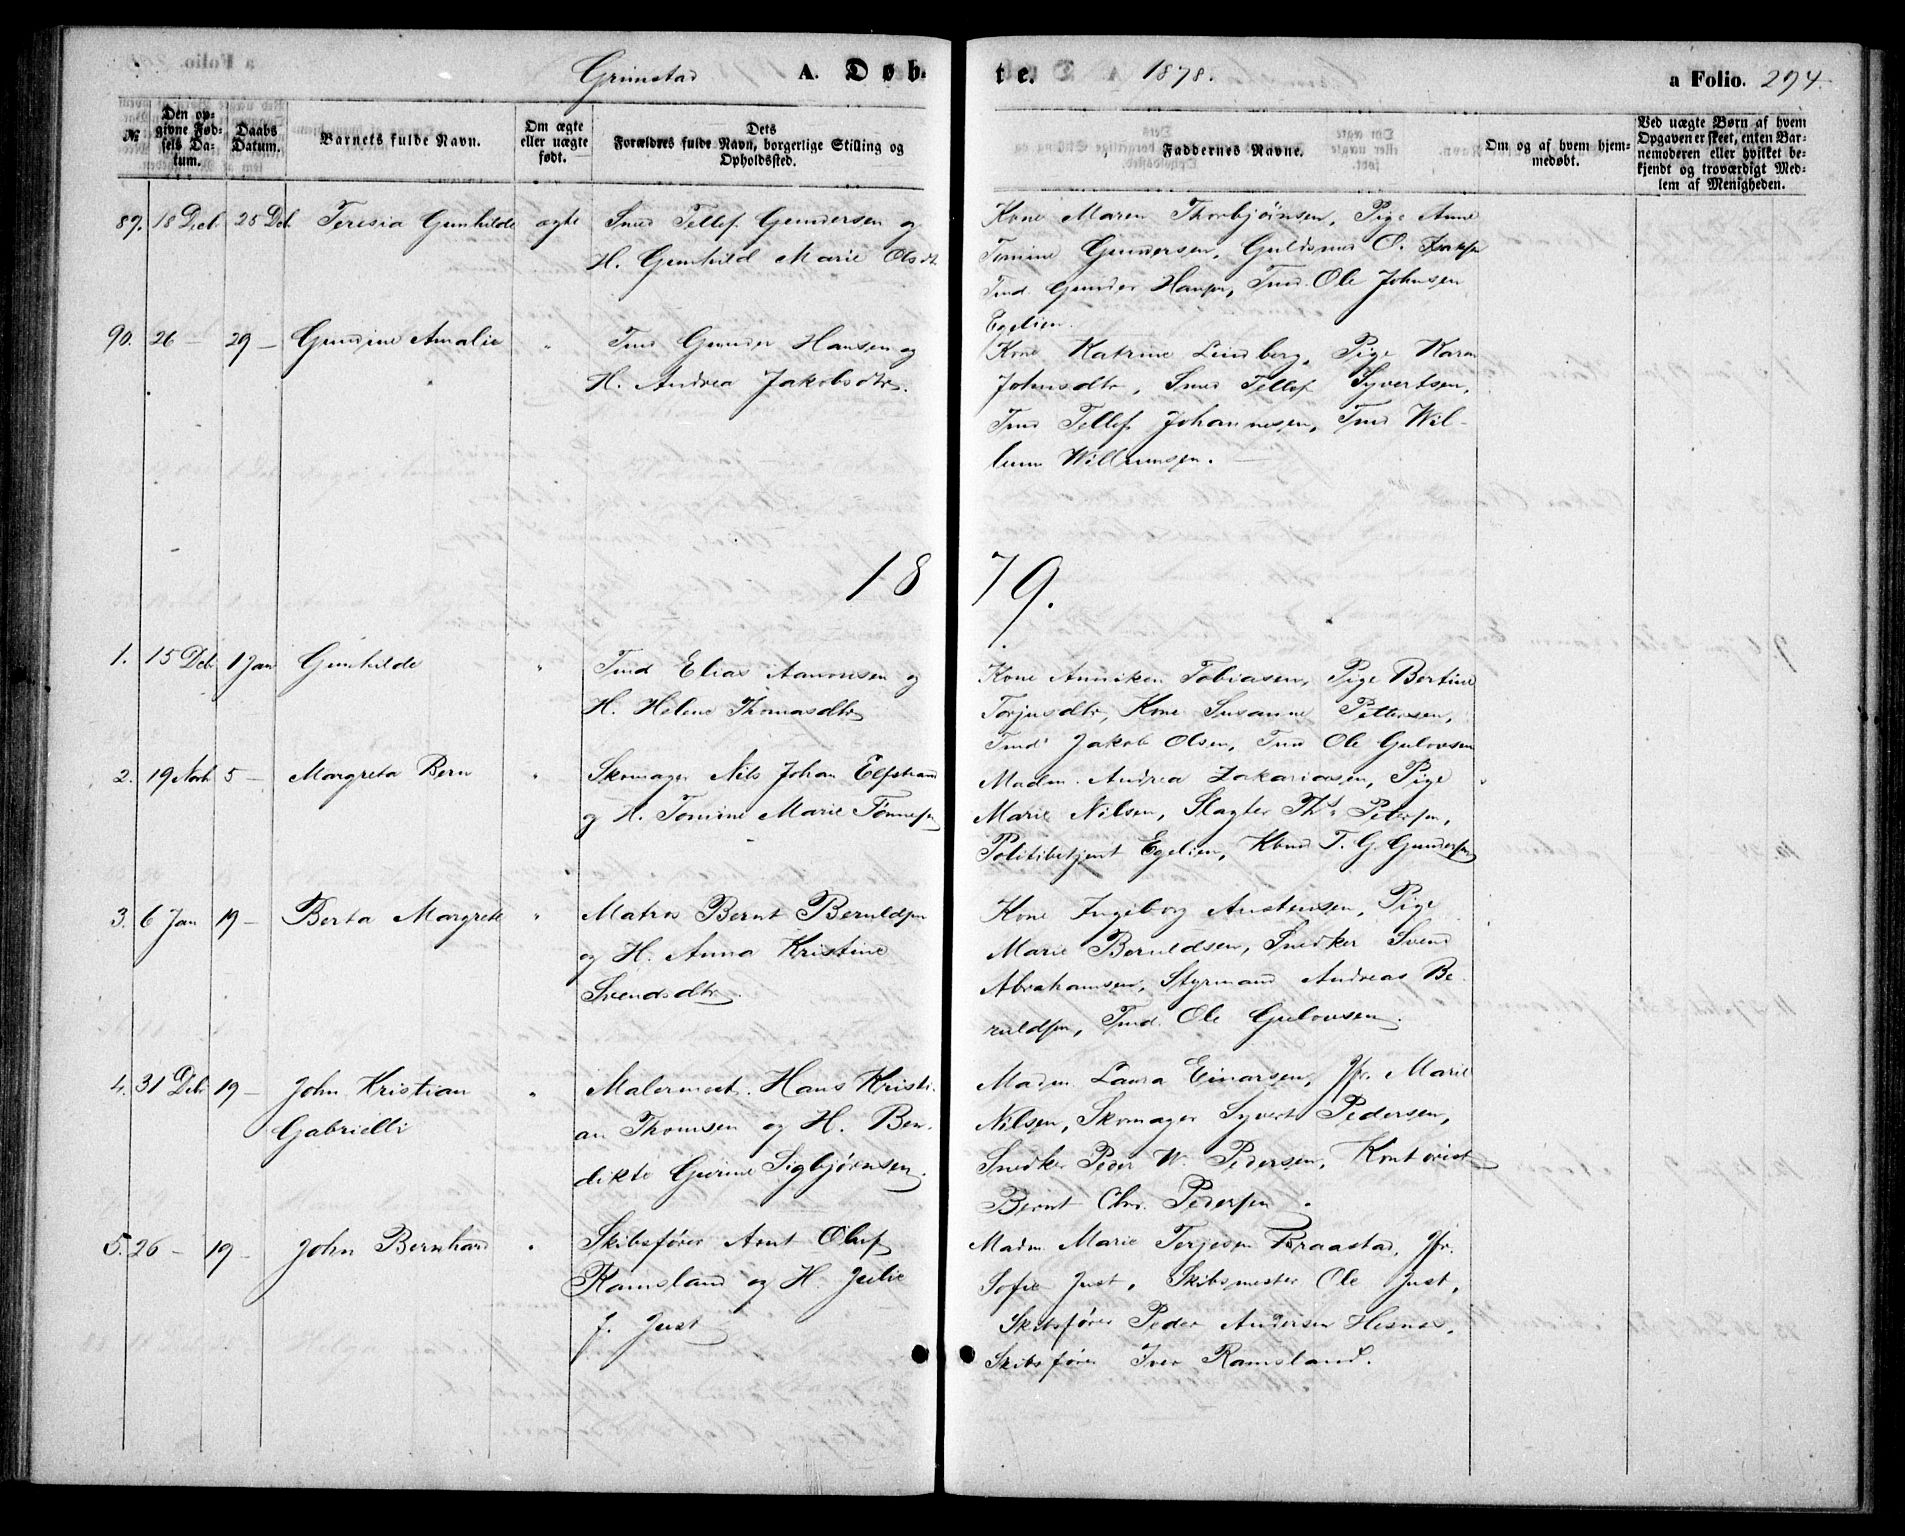 Grimstad A. Døbte. 1878. a Folio. 294.
№ Den opgivne Fødsels Datum. Daabs Datum. Barnets fulde Navn. Om ægte eller uægte født. Dets Forældres fulde Navn, borgerlige Stilling og Opholdssted. Faddernes Navne. Om og af hvem hjemmedøbt. Ved uægte Børn af hvem Opgaven er skeet, enten Barnemoderen eller hvilket bekjendt og troværdigt Medlem af Menigheden.
89. 18 Deb. 25 Deb. Teresia Gunhilde ægte Smed Tellef Gundersen og
H. Gunhild Marie Olsdtr
Kone Maren Thorbjørnsen, Pige Anne
Tomine Gundersen, Guldsmed O.
Tmd. Gunder Hansen, Tmd. Ole Johnsen
Egelien.
90. 26 — 29 — Gundine Amalie " Tmd Gunder Hansen og
H. Andrea Jakobsdtr.
Kone Katrine Lindberg, Pige Karen
Johnsdtr, Smed Tellef Syvertsen,
Tmd Tellef Johannesen, Tmd Wil-
lum Willumsen.
1879.
1. 15 Deb 1 Jan Gunhilde " Tmd Elias Aanonsen og
H. Helene Thomasdtr
Kone Anniken Tobiasen, Pige Bertine
Torjusdtr, Kone Susanne Pettersen,
Tmd Jakob Olsen, Tmd Ole Gulovsen
2. 19 Novb 5 — Margreta Bern " Skomager Nils Johan Elfstrand
og H. Tomine Marie Tønnesen
Madm. Andrea Zakariasen, Pige
Marie Nilsen, Slagter Ths Petersen,
Politibetjent Egelien, Kbmd T. G. Gundersen
3. 6 Jan 19 — Berta Margrete " Matros Bernt Beruldsen
og H. Anna Kristine
Svendsdtr.
Kone Ingeborg Austensen, Pige
Marie Beruldsen, Snedker Svend
Abrahamsen, Styrmand Andreas Be-
ruldsen, Tmd. Ole Gulovsen.
4. 31 Deb 19 — John Kristian
Gabrielli " Malermest. Hans Kristi-
an Thomsen og H. Ben-
dikte Gurine Sigbjørnsen.
Madm Laura Einarsen, Jfr. Marie
Nilsen, Skomager Syvert Pedersen,
Snedker Peder W. Pedersen, Kontorist
Bernt Chr. Pedersen.
5. 26 — 19 — John Bernhard " Skibsfører Arnt Oluf
Ramsland og H. Julie
J. Just
Madm Marie Terjesen Braastad, Jfr.
Sofie Just, Skibsmester Ole Just,
Skibsfører Peder Andersen Hesnes,
Skibsfører Iver Ramsland.